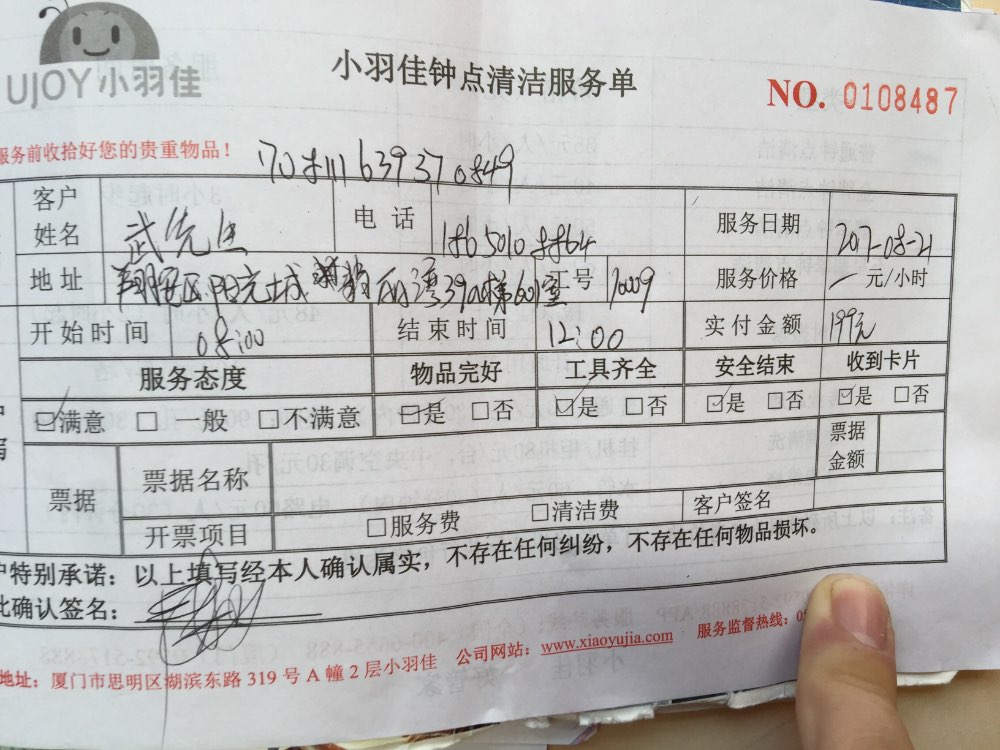 UJOY小羽佳
小羽佳钟点清洁服务单
NO. 0108487
服务前收拾好您的贵重物品!
客户姓名 武先生 电话 服务日期 2017-08-21
地址 翔安区阳光城 丽湾39 601室 工号 10009 服务价格 一 元/小时
开始时间 08:00 结束时间 12:00 实付金额 199元
服务态度 物品完好 工具齐全 安全结束 收到卡片
☑满意 □一般 □不满意 ☑是 □否 ☑是 □否 ☑是 □否 ☑是 □否
票据 票据名称 票据金额
开票项目 □服务费 □清洁费 客户签名
户特别承诺：以上填写经本人确认属实，不存在任何纠纷，不存在任何物品损坏。
此确认签名：
地址：厦门市思明区湖滨东路 319 号 A 幢 2 层小羽佳 公司网站：www.xiaoyujia.com 服务监督热线：